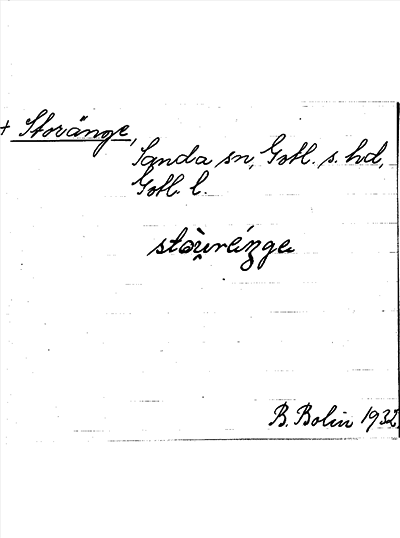 + Storänge,
Sanda sn, Gotl. s. hd,
Gotl. l.
B. Bolin 1932